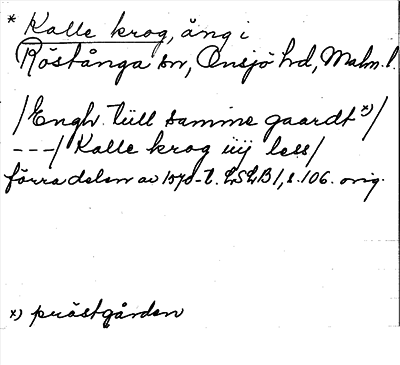 * Kalle krog, äng i
Röstånga sn, Onsjö hd, Malm. l.
/Engh. tüll samme gaardt x)/
---/ Kalle krog iij less/
förra delen av 1570-t. LSLB 1, s. 106. orig.
x) prästgården